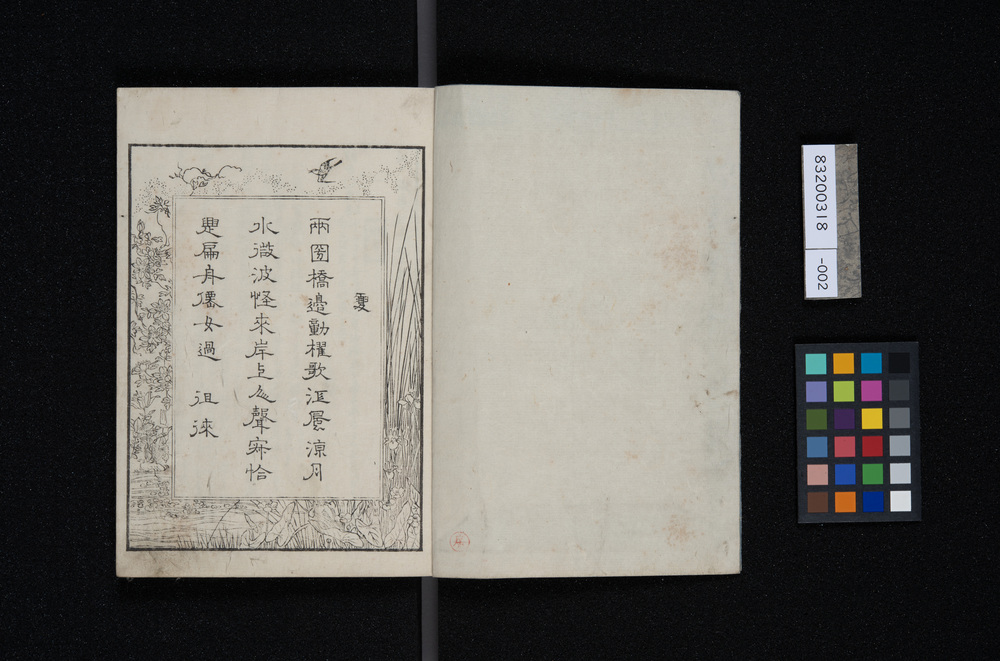 夏
兩國橋邉動櫂歌江風涼月
水微波怪來岸上人聲寂恰
是扁舟儒女過　徂徠
83200318
-002